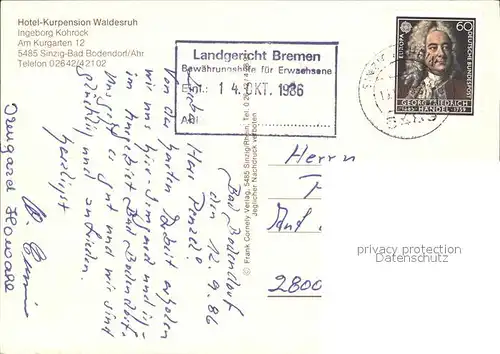 Hotel-Kurpension Waldesruh
Ingeborg Kohröck
Am Kurgarten 12
5485 Sinzig-Bad Bodendorf/Ahr
Telefon 02642/42102
Landgericht Bremen
Bewährungshilfe für Erwachsene
Eing.: 14. OKT. 1986
Abt.
EUROPA
60
DEUTSCHE BUNDESPOST
GEORG FRIEDRICH
HÄNDEL
1685 1759
5485
© Frank Cornely Verlag, 5485 Sinzig/Rhein, Tel. 0 26
Jeglicher Nachdruck verboten
Bad Bodendorf
den 12.9.86
Lieber Herr
Von der harten Arbeit erholen
wir uns hier. Irmgard und ich
im Bad Bodendorf.
Uns geht es gut und wir sind
glücklich und zufrieden.
herzlichst
Irmgard
Herrn
2800
privacy protection
Datenschutz